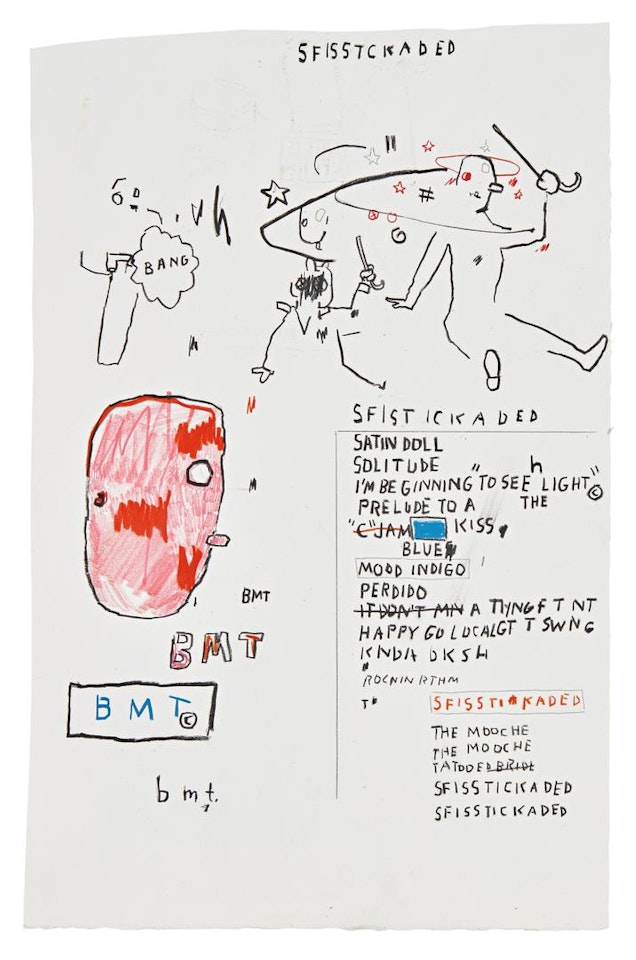 SFISSTCKADED
BANG
SFISTICKADED
SATIN DOLL
SOLITUDE
I'M BEGINNING TO SEE LIGHT" ©
THE
PRELUDE TO A
"C"JAM KISS,
BLUE
MOOD INDIGO
PERDIDO
IT DON'T MN A TIYNGF T NT
HAPPY GO LUCALGT T SWNG
KNDA DKSH
ROCNIN RTHM
T"
SFISSTI*KADED
THE MOOCHE
THE MOOCHE
TATOOED BRIDE
SFISSTICKADED
SFISSTICKADED
BMT
BMT
BMT©
bmt.